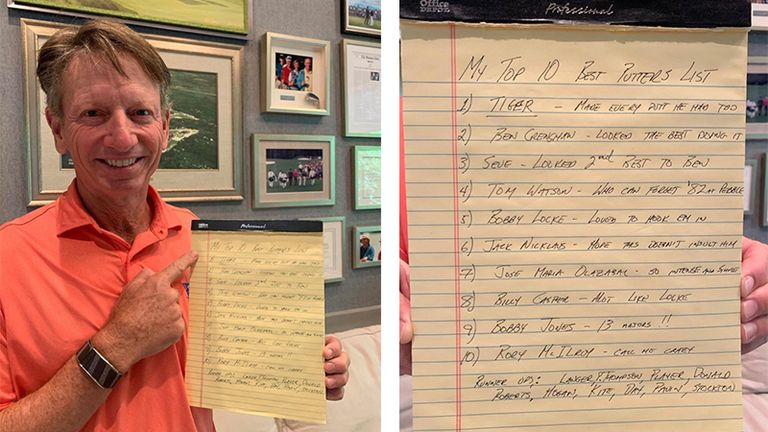 Office
DEPOT
Professional
MY TOP 10 BEST PUTTERS LIST
1) TIGER - MADE EVERY PUTT HE HAD TOO
2) BEN CRENSHAW - LOOKED THE BEST DOING IT
3) SEVE - LOOKED 2nd BEST TO BEN
4) TOM WATSON - WHO CAN FORGET '82 AT PEBBLE
5) BOBBY LOCKE - LOVED TO HOOK EM IN
6) JACK NICKLAUS - HOPE THIS DOESN'T INSULT HIM
7) JOSE MARIA OLAZABAL - SO INTENSE AND
8) BILLY CASPER - NOT LIKE LOCKE
9) BOBBY JONES - 13 MAJORS !!
10) RORY McILROY - CALL ME CRAZY
RUNNER UPS: LANGER, THOMPSON PLAYER, DONALD
ROBERTS, HOGAN, KITE, DAY, PAVIN, STOCKTON